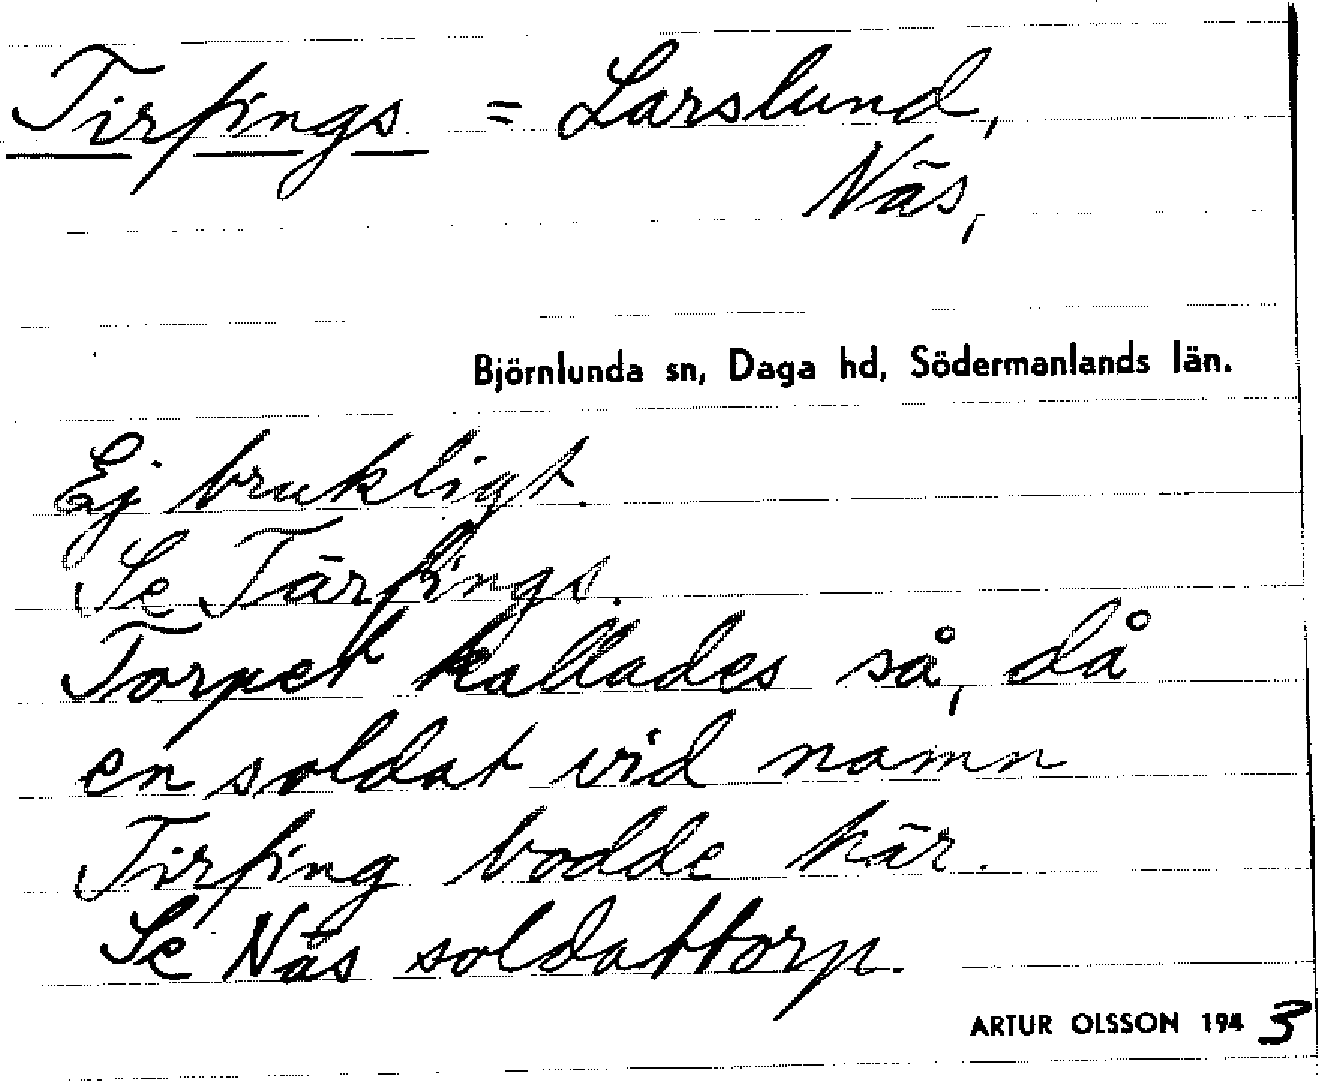 Tirfings = Larslund,
Näs,
Björnlunda sn, Daga hd, Södermanlands län.
Ej brukligt.
Se Tärfings.
Torpet kallades så, då
en soldat vid namn
Tirfing bodde här.
Se Näs soldattorp.
ARTUR OLSSON 1943